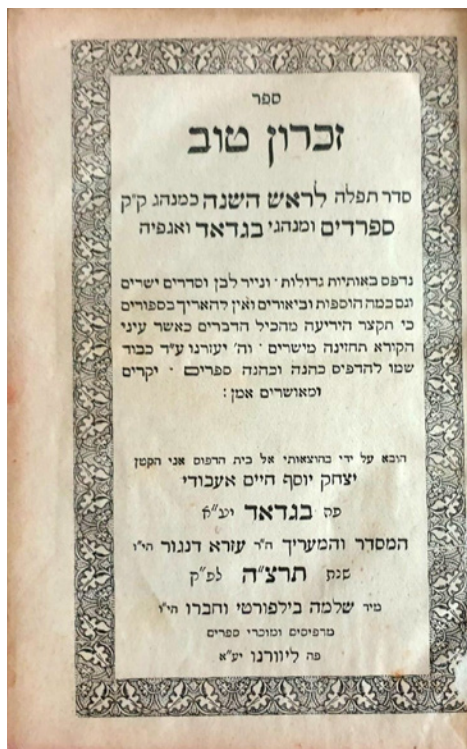 ספר
זכרון טוב
סדר תפלה לראש השנה כמנהג ק״ק
ספרדים ומנהגי בגדאד ואגפיה
נדפס באותיות גדולות · ונייר לבן וסדרים ישרים
וגם כמה הוספות וביאורים ואין להאריך בספורים
כי תקצר היריעה מהכיל הדברים כאשר עיני
הקורא תחזינה מישרים · וה׳ יעזרנו ע״ד כבוד
שמו להדפיס כהנה וכהנה ספרים · יקרים
ומאושרים אמן :
הובא על ידי בהוצאותי אל בית הדפוס אני הקטן
יצחק יוסף חיים אעבודי
פה בגדאד יע״א
המסדר והמעריך ה״ר עזרא דנגור הי״ו
שנת תרצ״ה לפ״ק
מיד שלמה בילפורטי וחברו הי״ו
מדפיסים ומוכרי ספרים
פה ליוורנו יע״א